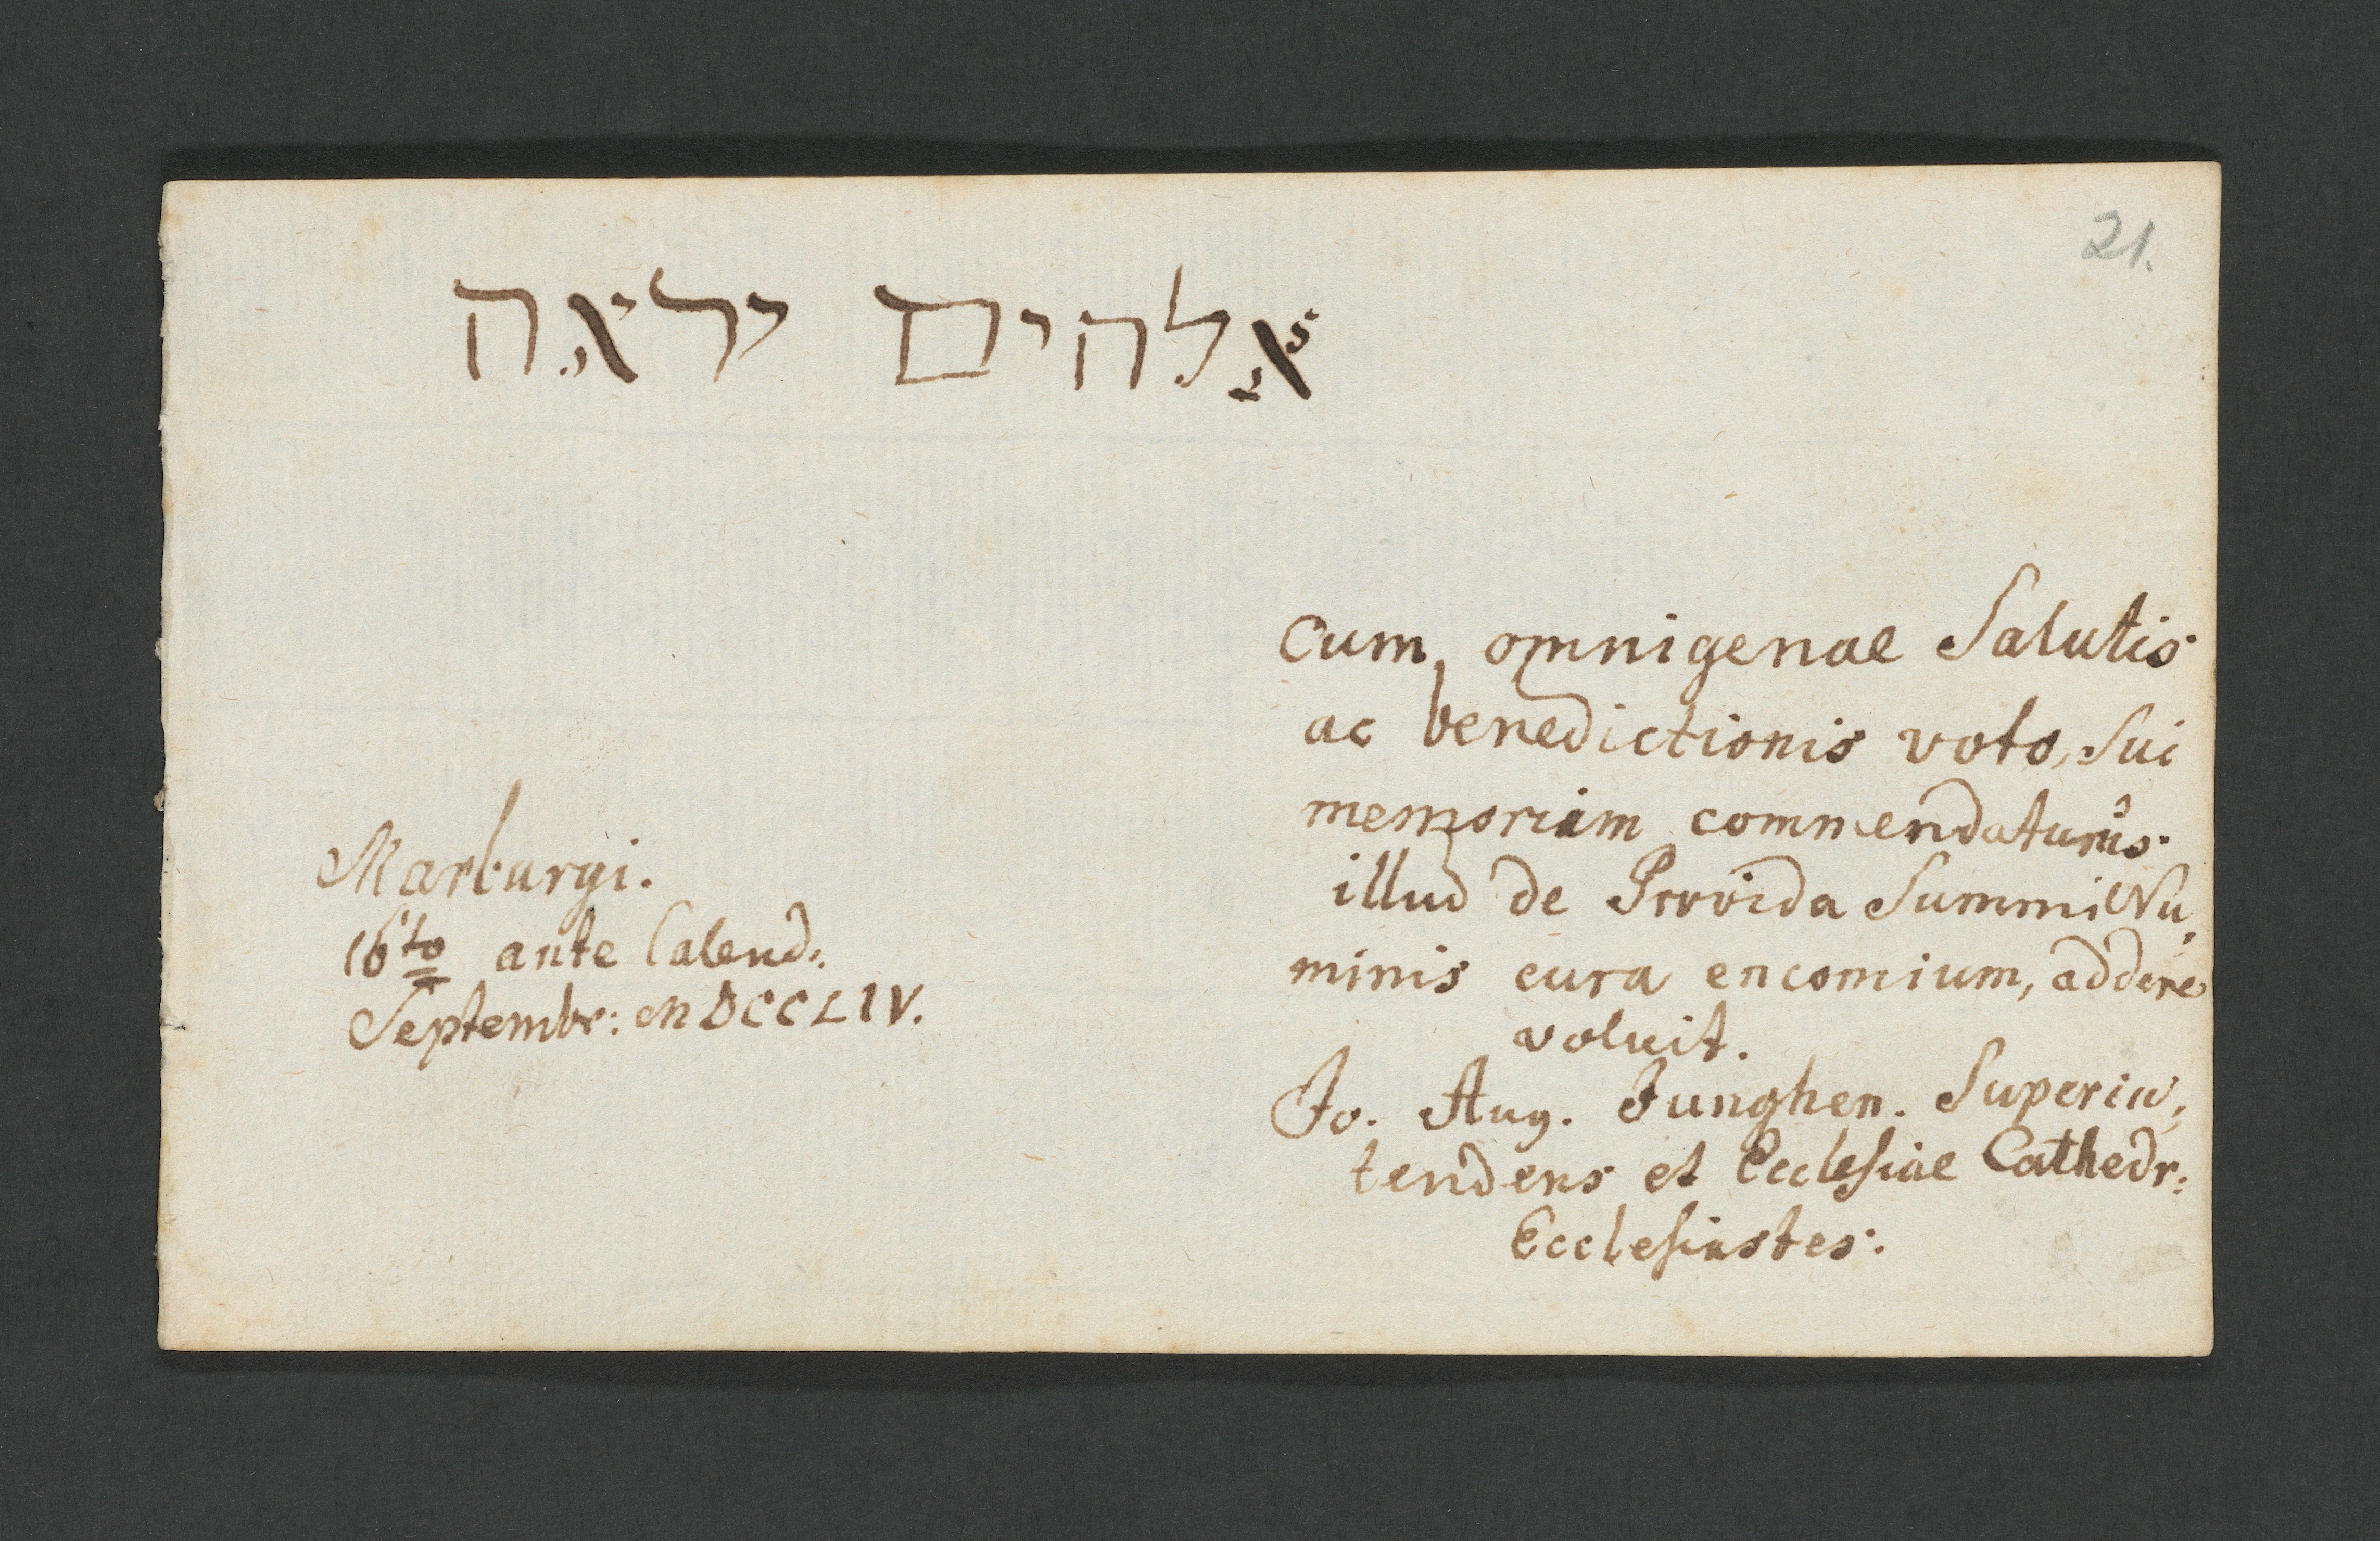 21.
אלהים יראה
Cum omnigenae Salutis
ac benedictionis voto, Sui
memoriam commendaturus
illud de Provida Summi Nu,
minis cura encomium, addere
voluit.
Jo. Aug. Junghen. Superin,
tendens et Ecclesiae Cathedr:
Ecclesiastes.
Marburgi.
16to ante Calend:
Septembr: MDCCLIV.